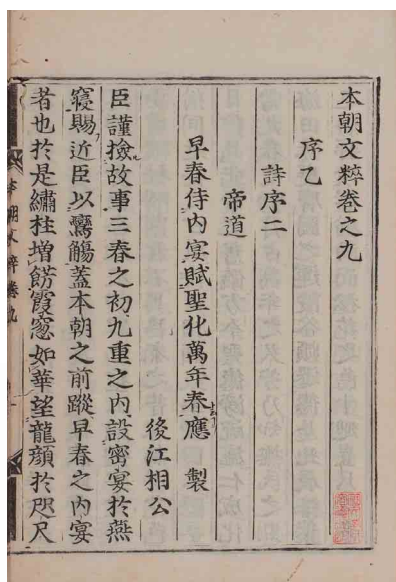 本朝文粹卷之九
序乙
詩序二
帝道
早春侍内宴賦聖化萬年春應　製
後江相公
臣謹撿故事三春之初九重之内設密宴於燕
寢賜近臣以鸞觴蓋本朝之前蹤早春之内宴
者也於是繡柱增餝霞窓如華望龍顔於咫尺
本朝文粹卷九